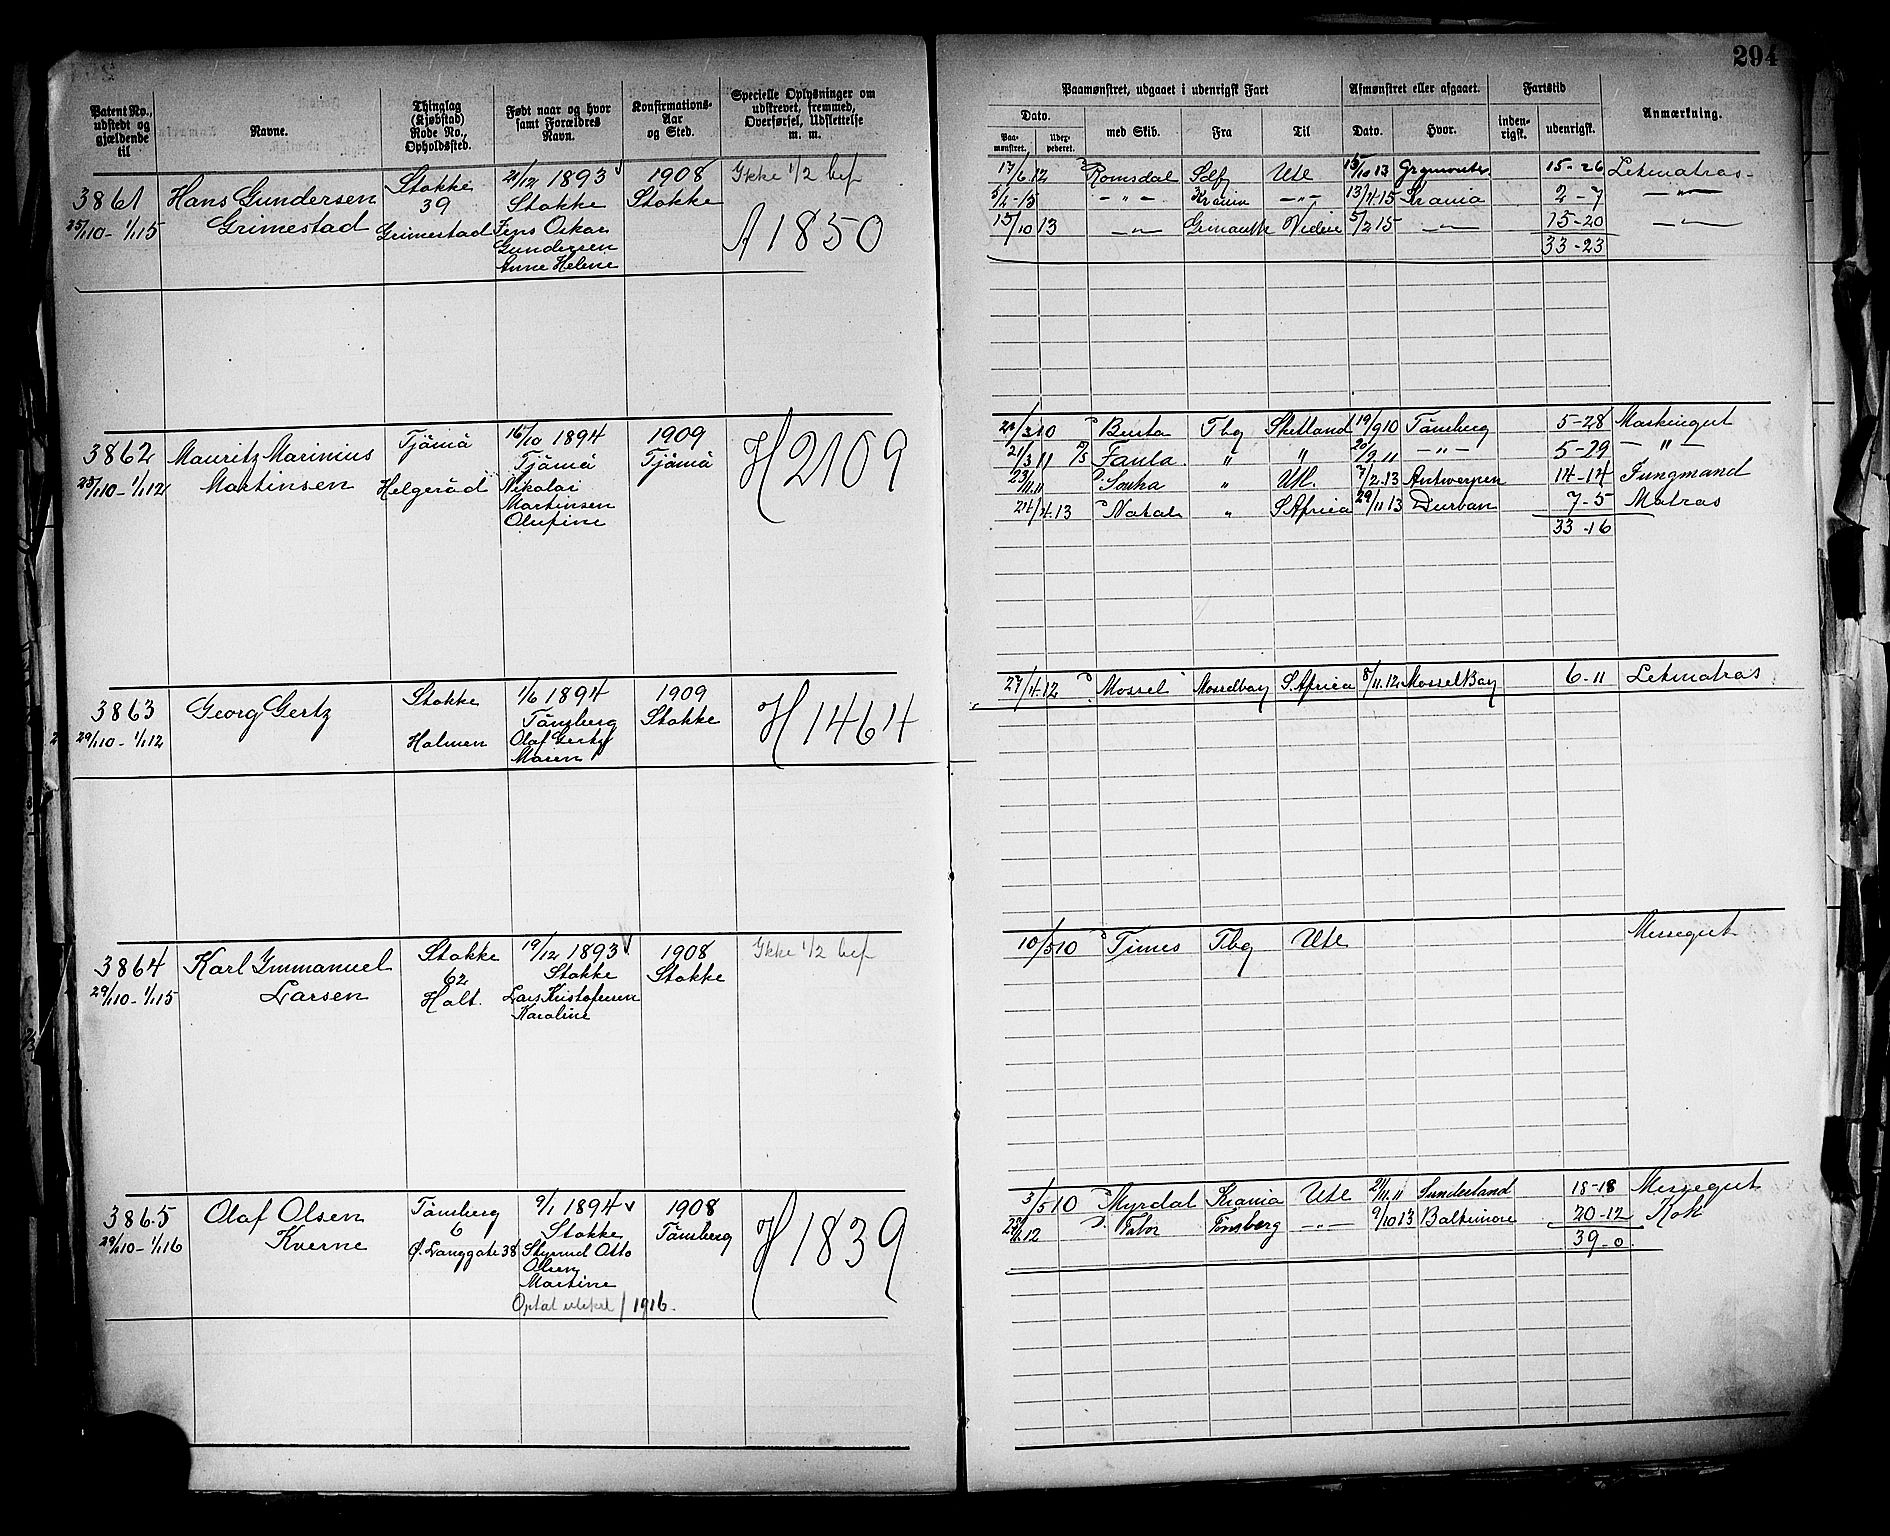 294
Patent No., udstedt og gjældende til
Navne.
Thinglag (Kjøbstad) Rode No., Opholdssted.
Født naar og hvor samt Forældres Navn.
Konfirmations- Aar og Sted.
Specielle Oplysninger om udskrevet, fremmed, Overførsel, Udslettelse m. m.
Paamønstret, udgaaet i udenrigsk Fart
Afmønstret eller afgaaet.
Fartstid
Anmærkning.
Dato.
Paa- mønstret.
med Skib.
Fra
Til
Dato.
Hvor.
inden- rigsk.
udenrigsk.
3861 Hans Gundersen Stokke 21/12 1893 1908 Ikke 1/2 bef
Grimestad 39 Stokke Stokke
25/1 10 - 1/1 15 Grimestad Jens Oskar A 1850
Gundersen
Anne Helene
17/6.12 Romsdal Ute 15/10 13 15-26 Letmatros
- " - - " - 13/4.15 Krania 2-7 - " -
15/10 13 - " - 5/2 15 - " - 15-20 - " -
33-23
3862 Mauritz Marinius Tjömö 16/10 1894 1909 H 2109
Martinsen Tjömö Tjömö
25/1 10 - 1/1 12 Helgeröd Nikolai
Martinsen
Olufine
Busta Tbg Shetland 19/9 10 Tönsberg 5-28 Maskingut
21/3 11 Faula " " 20/9 11 - " - 5-29 - " -
" Utl. 7/2.13 Antwerpen 14-14 Jungmand
24/4.13 Natal " S. Africa 29/11 13 Durban 7-5 Matros
33-16
3863 Georg Gertz Stokke 1/6 1894 1909 H 1464
Tönsberg Stokke
29/1 10 - 1/1 12 Holmen Olaf Gertz
Maren
27/4.12 Mossel Mosselbay S. Africa 8/11.12 Mossel Bay 6-11 Letmatros
3864 Karl Immanuel Stokke 19/12 1893 1908 Ikke 1/2 bef
Larsen 62 Stokke Stokke
29/1 10 - 1/1 15 Holt. Lars Kristofersen
Karoline
10/5 10 Times Tbg Ute Messegut
3865 Olaf Olsen Tönsberg 9/1 1894 1908 H 1839
Kverne 6 Stokke Tönsberg
29/1 10 - 1/1 16 Ø. Langgate 38 Styrmd Otto
Olsen
Martine
1916.
3/5 10 Myrdal Krania Ute 21/11.11 Sunderland 18-18 Messegut
Tönsberg - " - 9/10 13 Baltimore 20-12 Kok
39-0